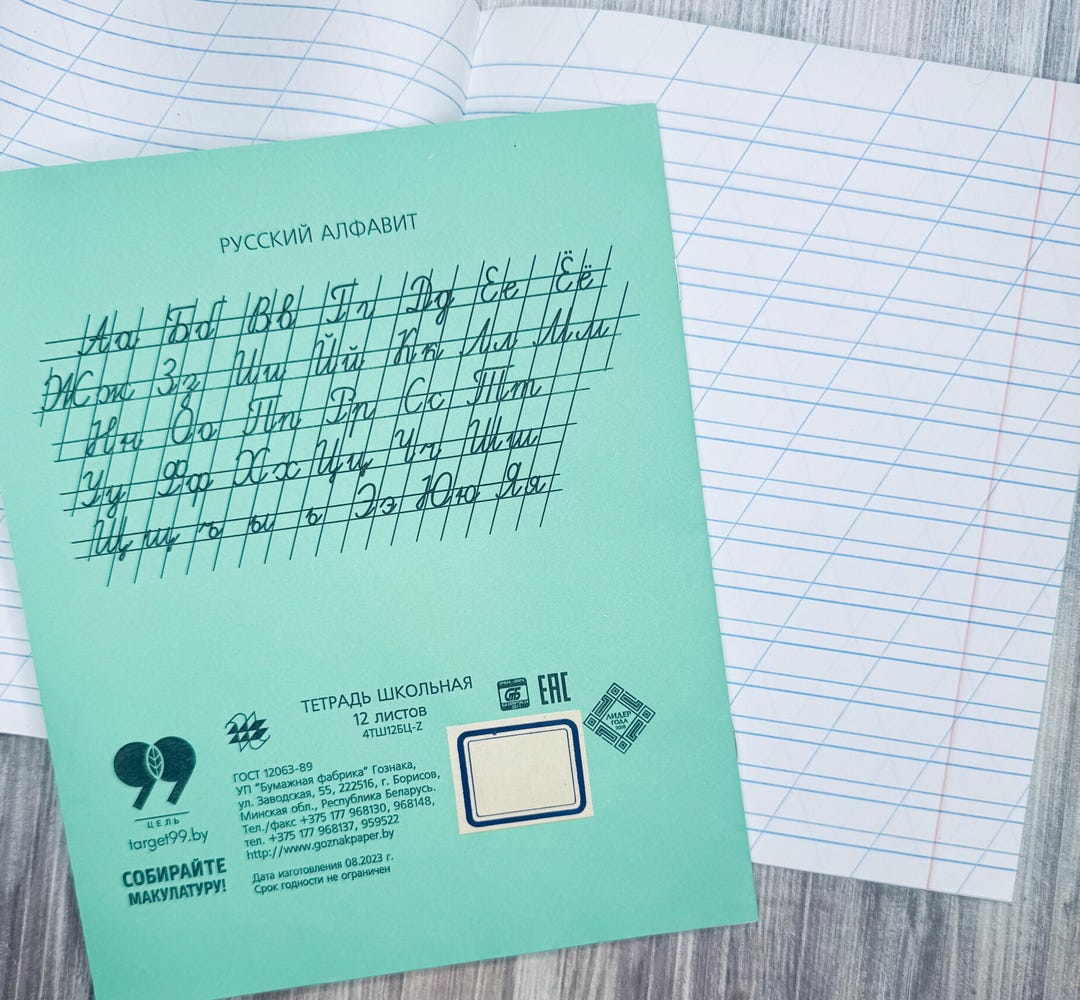 РУССКИЙ АЛФАВИТ
Аа Бб Вв Гг Дд Ее Ёё
Жж Зз Ии Йй Кк Лл Мм
Нн Оо Пп Рр Сс Тт
Уу Фф Хх Цц Чч Шш
Щщ ъ ы ь Ээ Юю Яя
ТЕТРАДЬ ШКОЛЬНАЯ
12 листов
4ТШ12БЦ-Z
СТБ
ЕАС
ЛИДЕР
ГОДА
99
ЦЕЛЬ
target99.by
СОБИРАЙТЕ
МАКУЛАТУРУ!
ГОСТ 12063-89
УП "Бумажная фабрика" Гознака,
ул. Заводская, 55, 222516, г. Борисов,
Минская обл., Республика Беларусь.
Тел./факс +375 177 968130, 968148,
тел. +375 177 968137, 959522
http://www.goznakpaper.by
Дата изготовления 08.2023 г.
Срок годности не ограничен